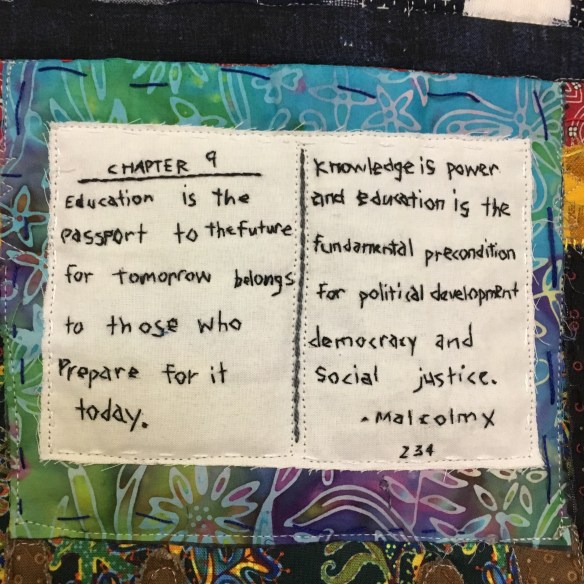 CHAPTER 9
Education is the
PASSPORT to the future
for tomorrow belongs
to those who
Prepare for it
today.
Knowledge is power
and education is the
fundamental precondition
for political development
democracy and
Social justice.
- Malcolm X
234